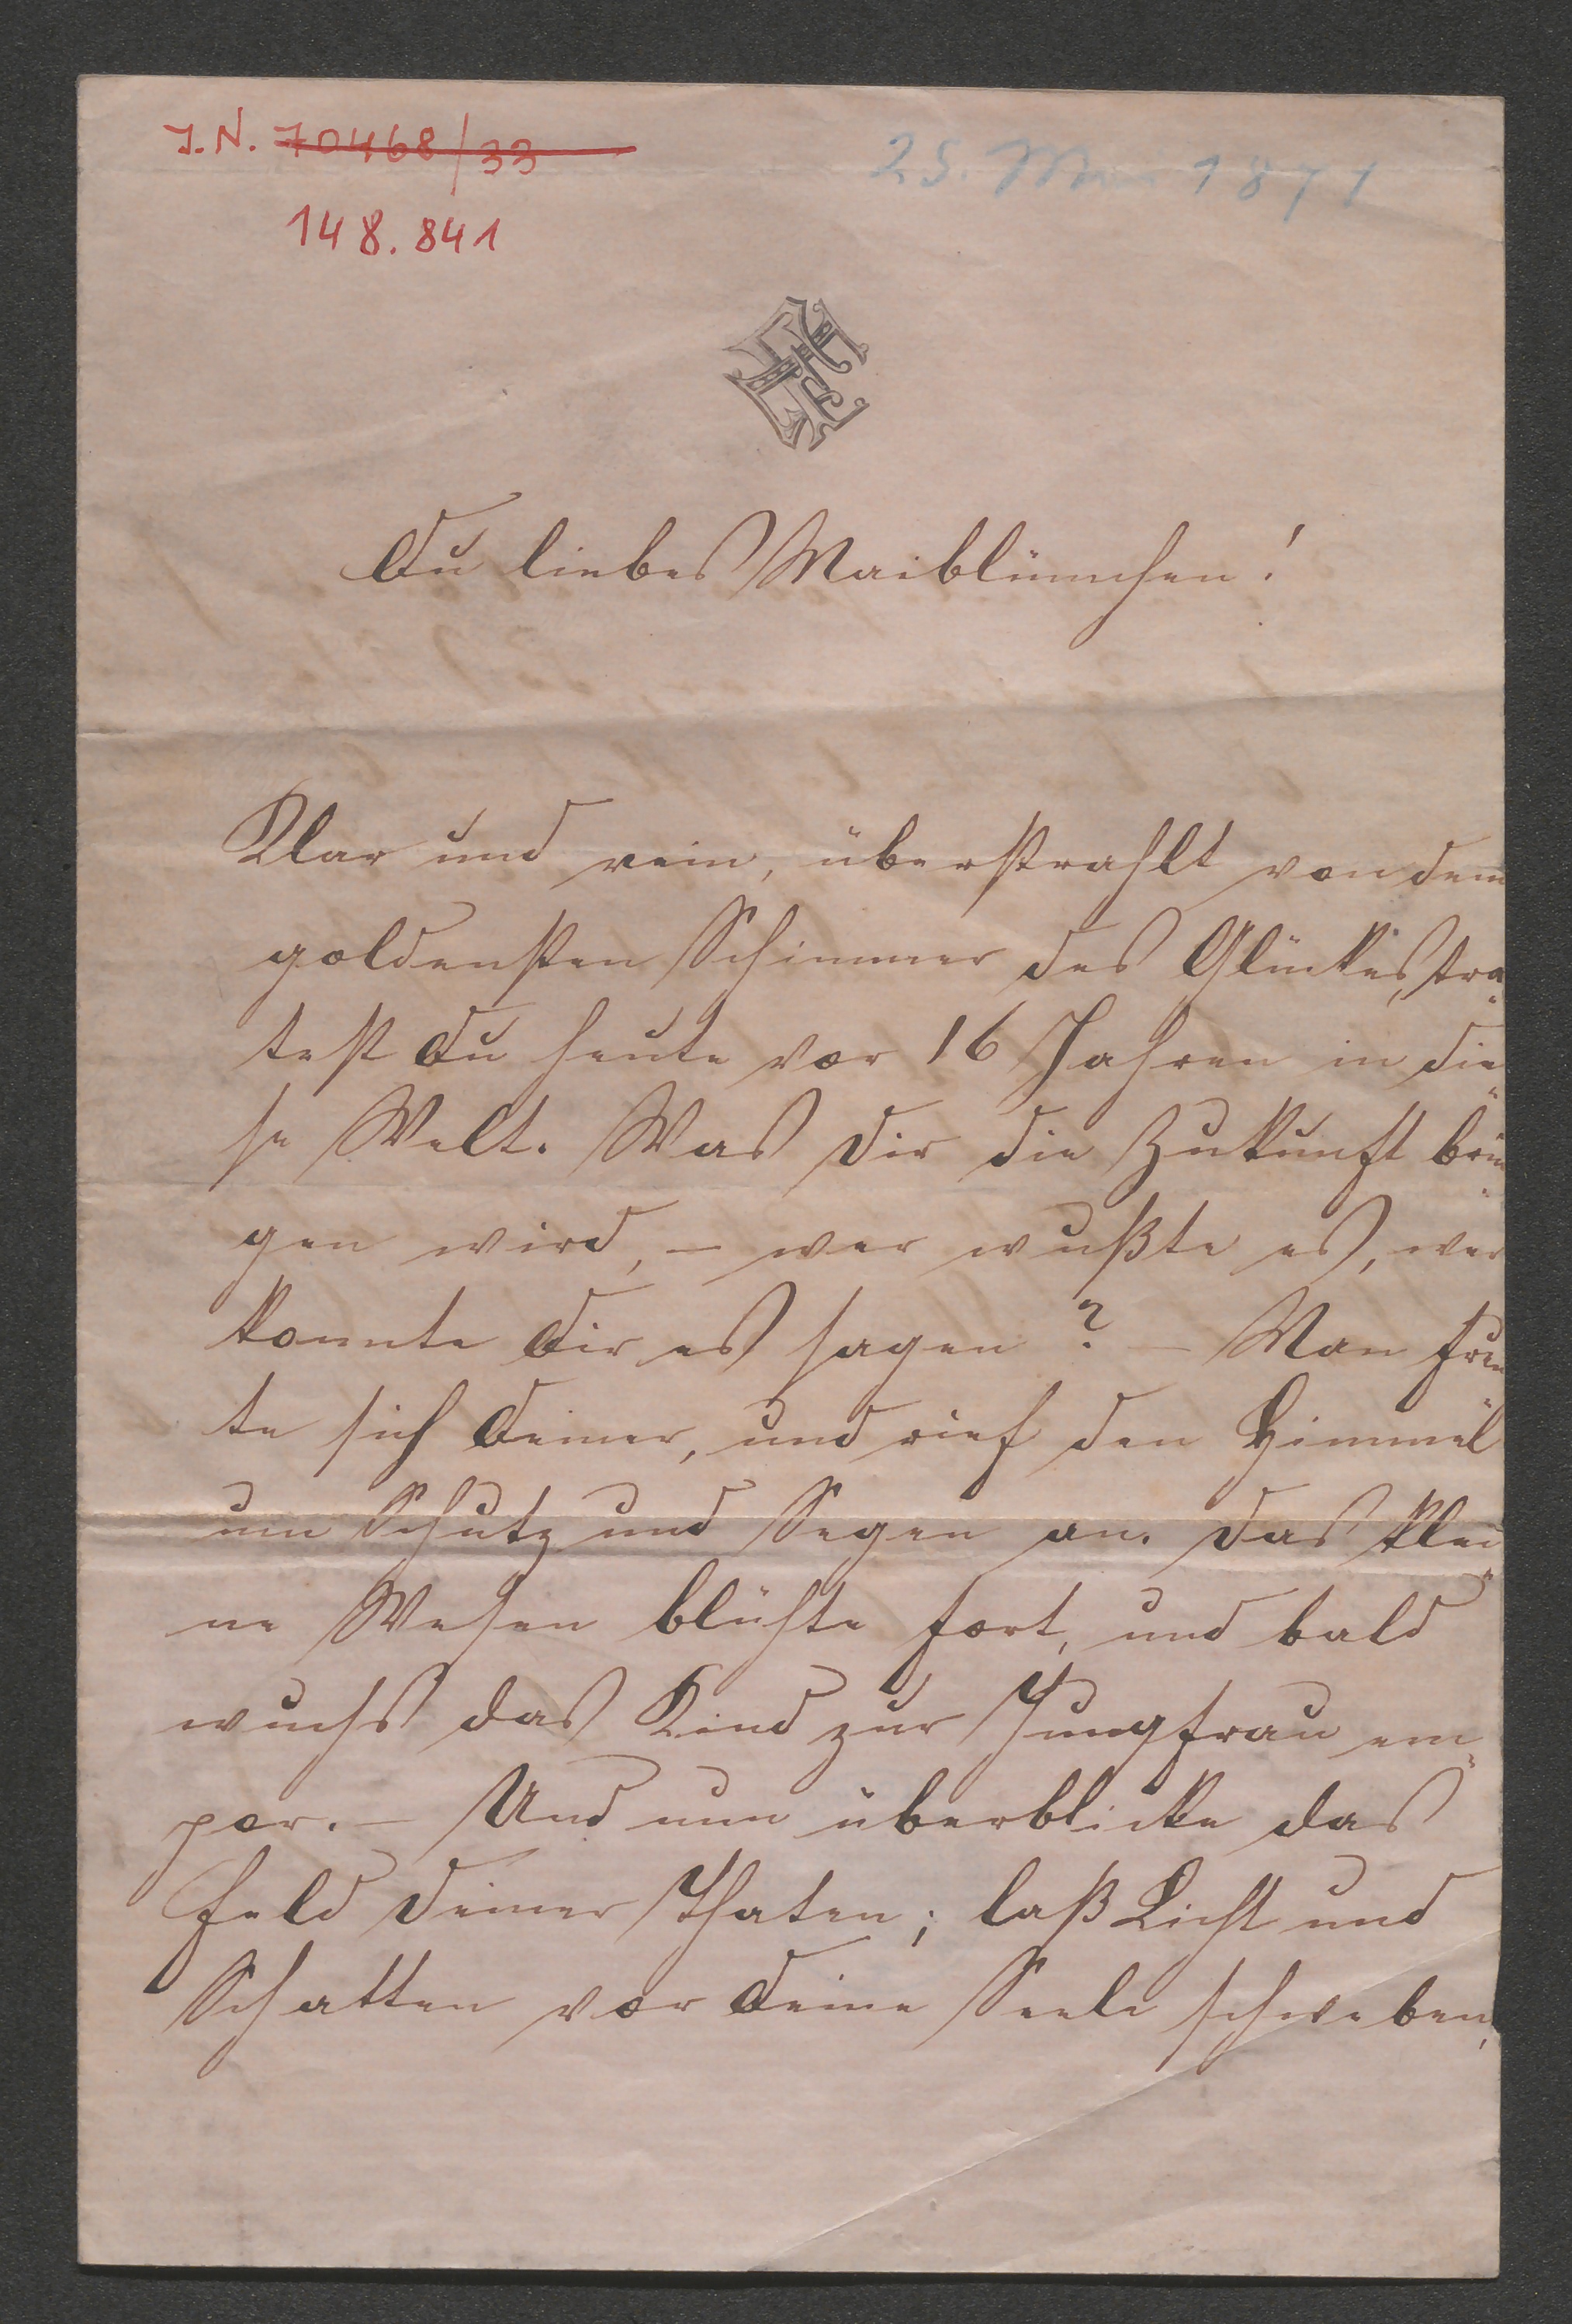 J.N. 70468/33
25. Mai 1871
148.841
Du liebes Maiblümchen!
Klar und rein, überstrahlt von dem
goldensten Schimmer des Glückes, tra-
test Du heute vor 16 Jahren in die-
se Welt. Was Dir die Zukunft brin-
gen wird, – wer wußte es, wer
konnte Dir es sagen? – Man freu-
te sich Deiner, und rief den Himmel
um Schutz und Segen an. Das klei-
ne Wesen blühte fort, und bald
wuchs das Kind zur Jungfrau em-
por. – Und nun überblicke das
Feld Deiner Thaten; laß Licht und
Schatten vor Deine Seele schweben,